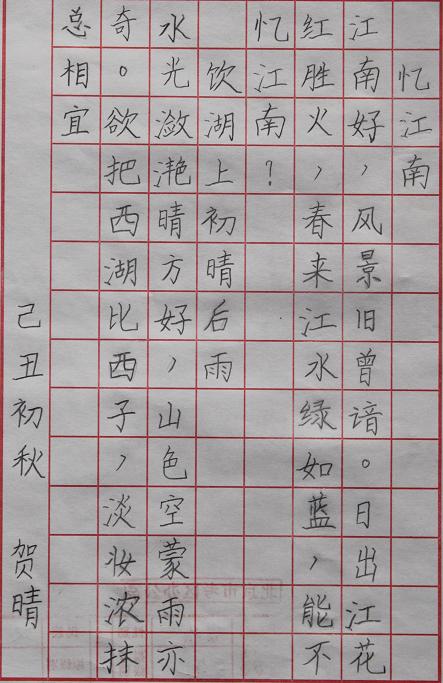 忆江南
江南好，风景旧曾谙。日出江花
红胜火，春来江水绿如蓝，能不
忆江南？
饮湖上初晴后雨
水光潋滟晴方好，山色空蒙雨亦
奇。欲把西湖比西子，淡妆浓抹
总相宜
己丑初秋 贺晴